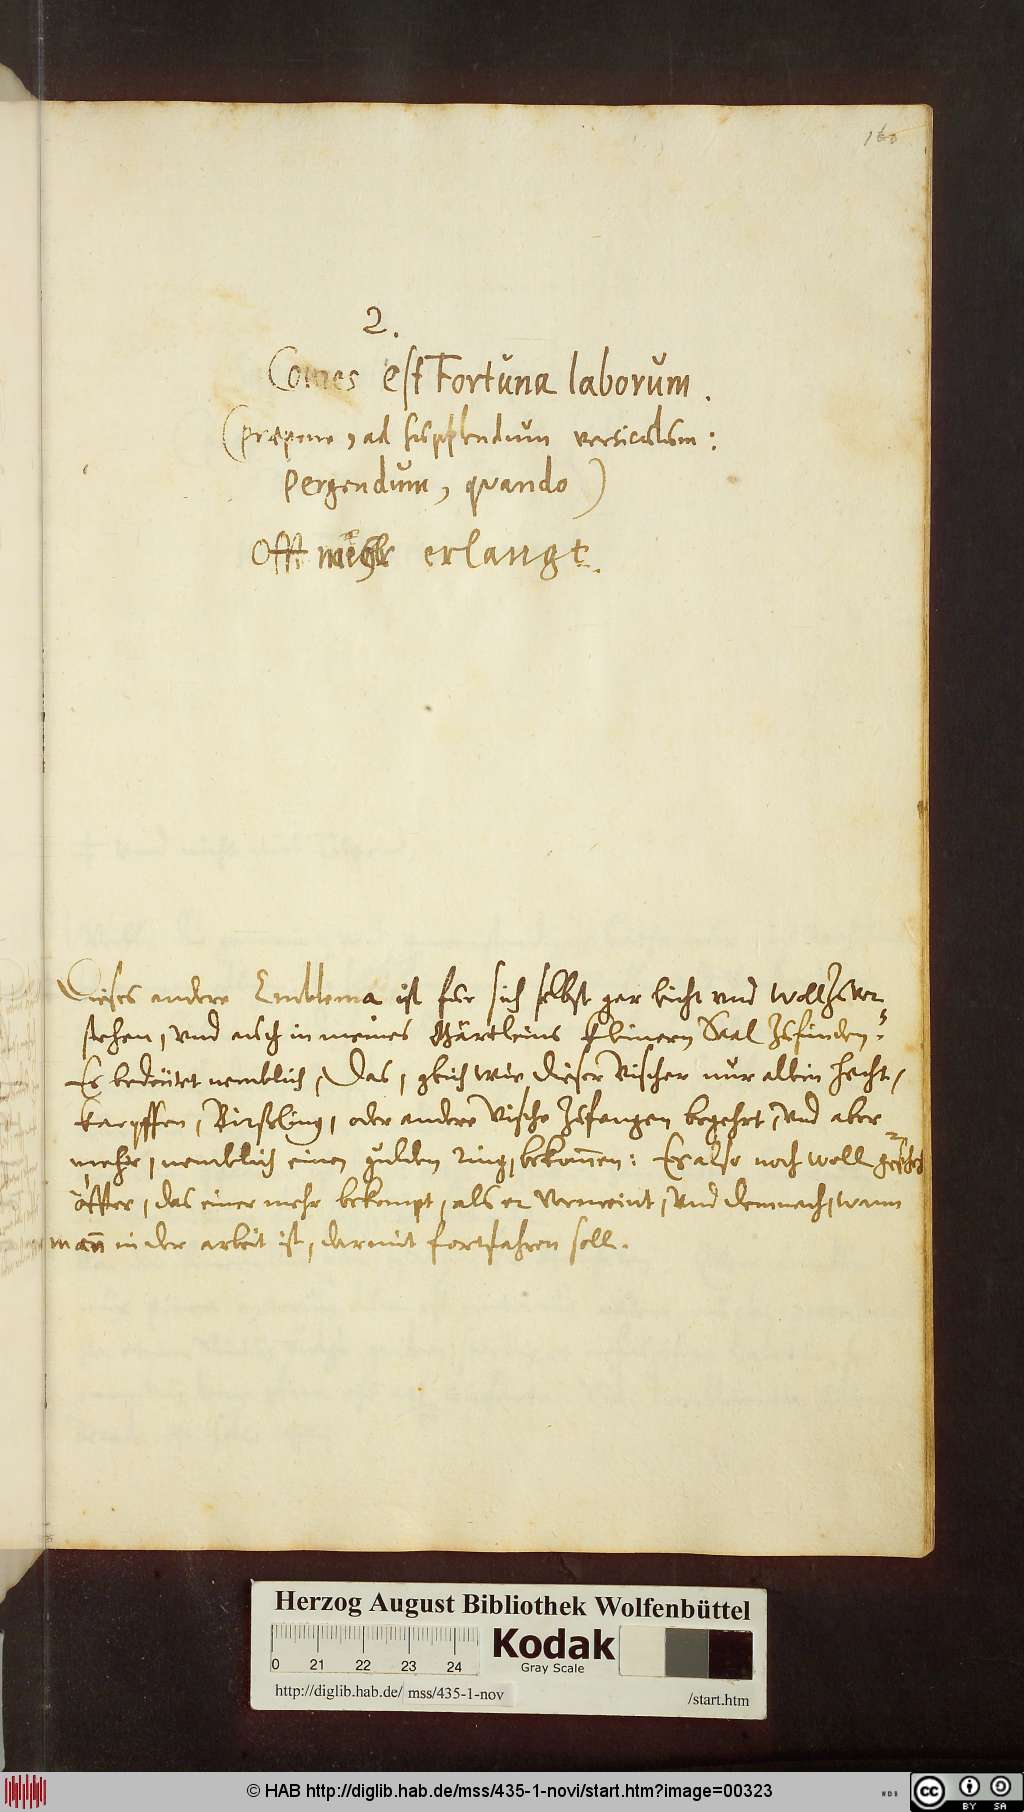 160
2.
Comes est Fortuna laborum.
(praepone, ad supplendum versiculum:
Pergendum, quando)
Offt mehr erlangt.
Dieses andere Emblema ist fur sich selbst gar leicht und woll Zuver
stehen, und auch in meines Gärtleins Saal Zufinden.
Es bedeütet nemblich, Das, gleich wie dieser Vischer nur allein Hecht,
Karpffen, oder andere Vische Zufangen begehrt, und aber
mehr, nemblich einen gulden ring, bekommen: Er also noch woll
öffter, das einer mehr bekompt, als er vermeint, und demnach, wann
mann in der arbeit ist, darmit fortfahren soll.
Herzog August Bibliothek Wolfenbüttel
Kodak
Gray Scale
0 21 22 23 24
http://diglib.hab.de/ mss/435-1-nov /start.htm
© HAB http://diglib.hab.de/mss/435-1-novi/start.htm?image=00323
WDB
cc BY SA